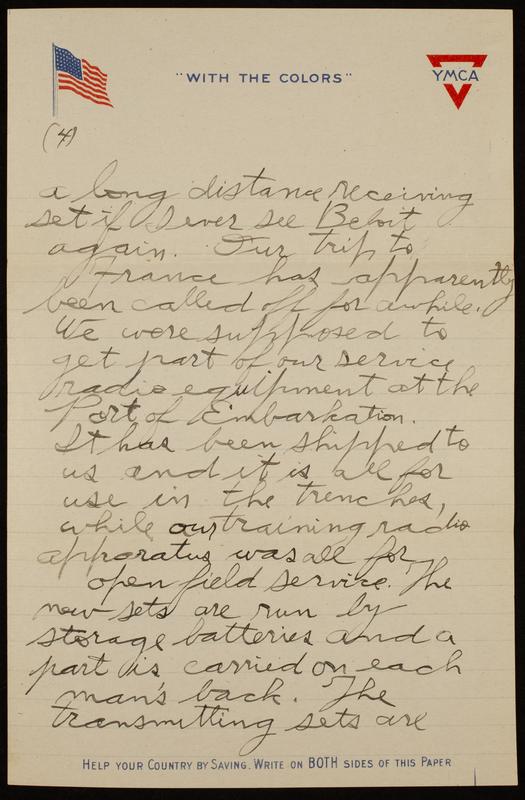 "WITH THE COLORS"
YMCA
(4)
a long distance receiving
set if I ever see Beloit
again. Our trip to
France has apparently
been called off for awhile.
We were supposed to
get part of our service
radio equipment at the
Port of Embarkation.
It has been shipped to
us and it is all for
use in the trenches,
while our training radio
apparatus was all for
open field service. The
new sets are run by
storage batteries and a
part is carried on each
man's back. The
transmitting sets are
HELP YOUR COUNTRY BY SAVING. WRITE ON BOTH SIDES OF THIS PAPER